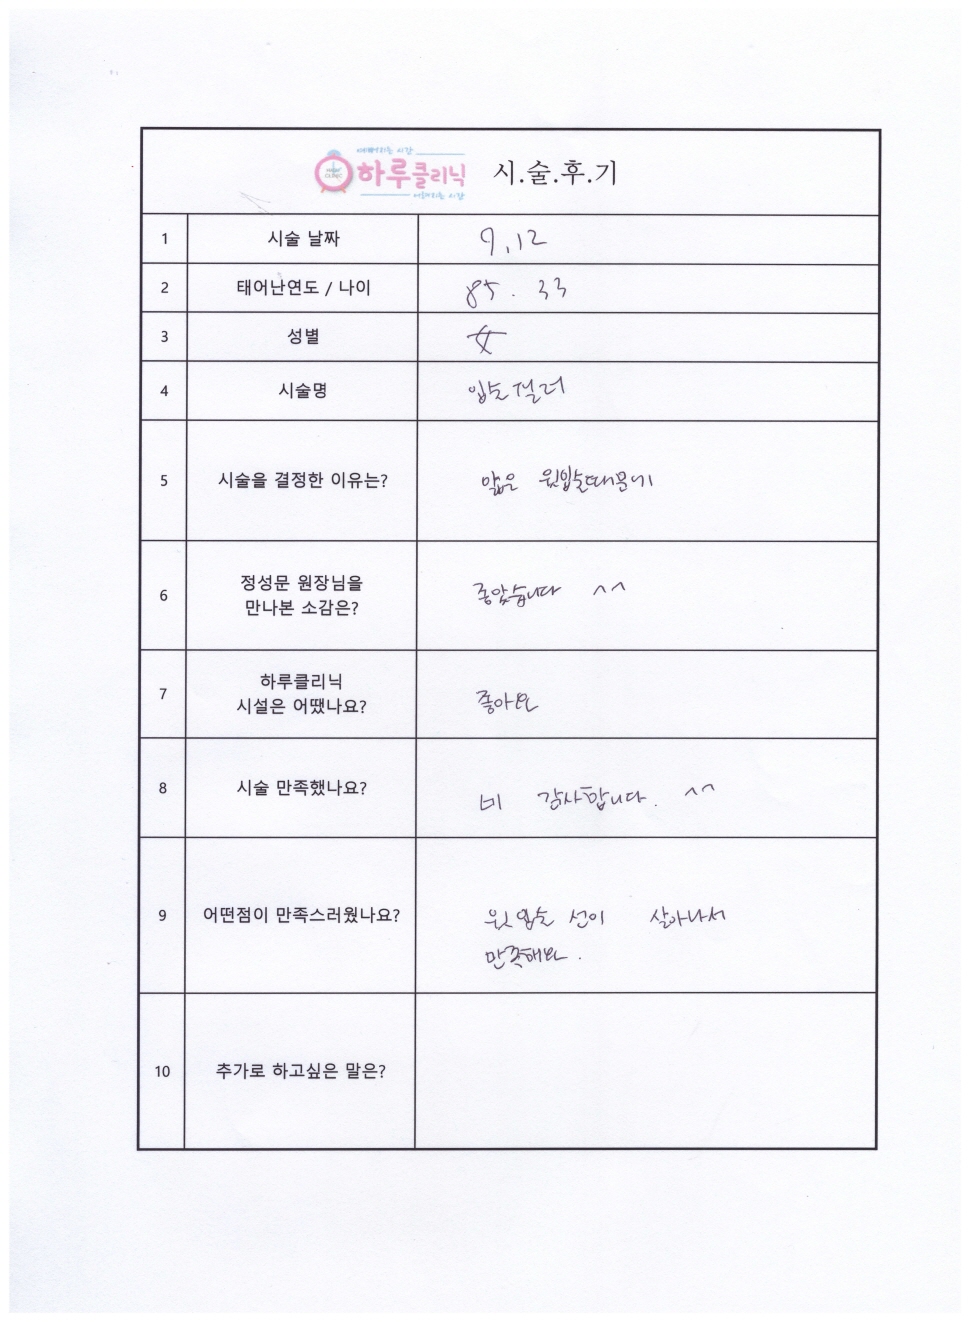 예뻐지는 시간
하루클리닉 시.술.후.기
어려지는 시간
1 시술 날짜 9.12
2 태어난연도 / 나이 85. 33
3 성별 女
4 시술명 입술필러
5 시술을 결정한 이유는? 얇은 윗입술때문에
6 정성문 원장님을
만나본 소감은? 좋았습니다 ^^
7 하루클리닉
시설은 어땠나요? 좋아요
8 시술 만족했나요? 네 감사합니다. ^^
9 어떤점이 만족스러웠나요? 윗입술 선이 살아나서
만족해요.
10 추가로 하고싶은 말은?